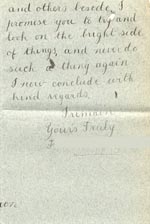 and others beside. I
promise you to try and
look on the bright side
of things, and never do
such a thing again
I now conclude with
kind regards.
I remain
Yours Truly
F